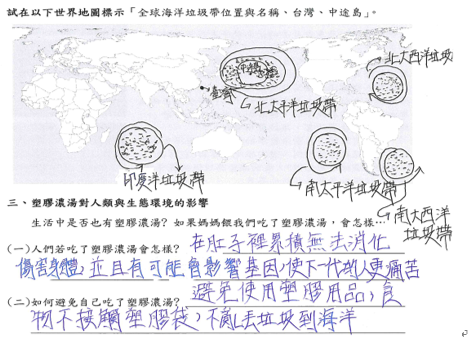 試在以下世界地圖標示「全球海洋垃圾帶位置與名稱、台灣、中途島」。
北大西洋垃圾帶
中途島
台灣
北太平洋垃圾帶
印度洋垃圾帶
南太平洋垃圾帶
南大西洋垃圾帶
三、塑膠濃湯對人類與生態環境的影響
生活中是否也有塑膠濃湯？如果媽媽餵我們吃了塑膠濃湯，會怎樣…
(一)人們若吃了塑膠濃湯會怎樣？在肚子裡累積無法消化
傷害身體，並且有可能會影響基因，使下一代的人更痛苦
(二)如何避免自己吃了塑膠濃湯？避免使用塑膠用品，食
物不接觸塑膠袋，不亂丟垃圾到海洋